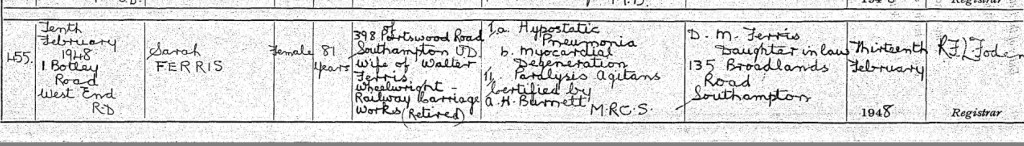 1948
Registrar
455.
Tenth
February
1948
1 Botley
Road
West End
R.D
Sarah
FERRIS
Female
81
years
of
398 Portswood Road
Southampton U.D.
Wife of Walter
Ferris
Wheelwright -
Railway Carriage
Works (Retired)
I.a. Hypostatic
Pneumonia
b. Myocardial
Degeneration
II. Paralysis Agitans
Certified by
A. H. Burnett M.R.C.S.
D. M. Ferris
Daughter in law
135 Broadlands
Road
Southampton
Thirteenth
February
1948
Registrar